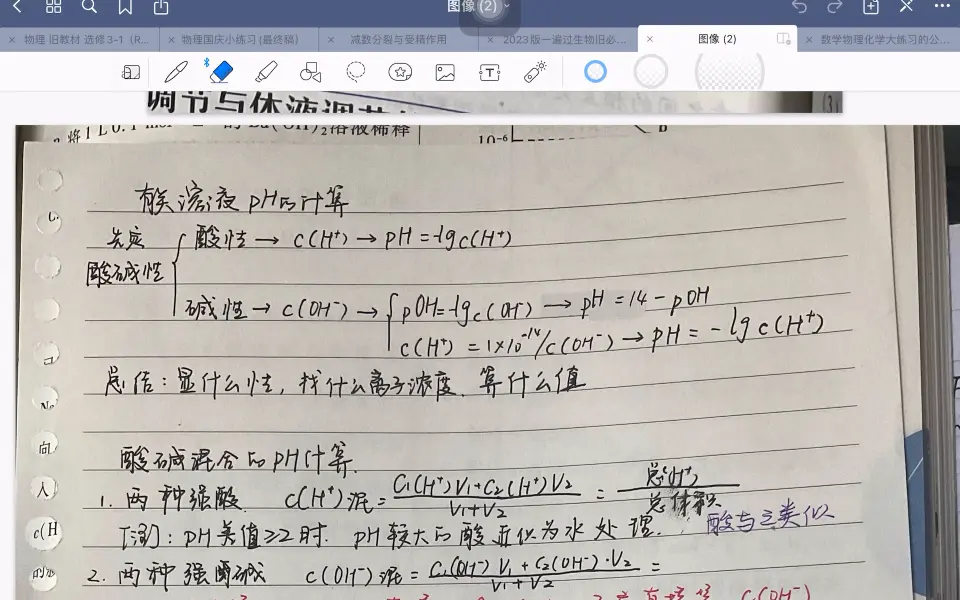 图像 (2)
物理 旧教材 选修3-1（R...
物理国庆小练习(最终稿)
减数分裂与受精作用
2023版一遍过生物旧必...
图像 (2)
数学物理化学大练习的公...
调节与体液调节
2. 将1 L 0.1 mol
的 Ba(OH)₂溶液稀释
10⁻⁶
B
有关溶液pH的计算
先定
酸碱性
酸性 → c(H⁺) → pH = -lgc(H⁺)
碱性 → c(OH⁻) →
pOH=-lgc(OH⁻) → pH = 14 - pOH
c(H⁺) = 1×10⁻¹⁴/c(OH⁻) → pH = -lg c(H⁺)
总结：显什么性，找什么离子浓度，算什么值
酸碱混合的pH计算.
1. 两种强酸 c(H⁺)混 = C₁(H⁺)V₁+C₂(H⁺)V₂ / V₁+V₂ = 总(H⁺) / 总体积
[注]：pH差值≥2时. pH较大的酸近似为水处理.
酸与之类似
2. 两种强碱 c(OH⁻)混 = C₁(OH⁻)V₁+C₂(OH⁻)·V₂ / V₁+V₂ =
C(OH⁻)
向
人
c(H
的物